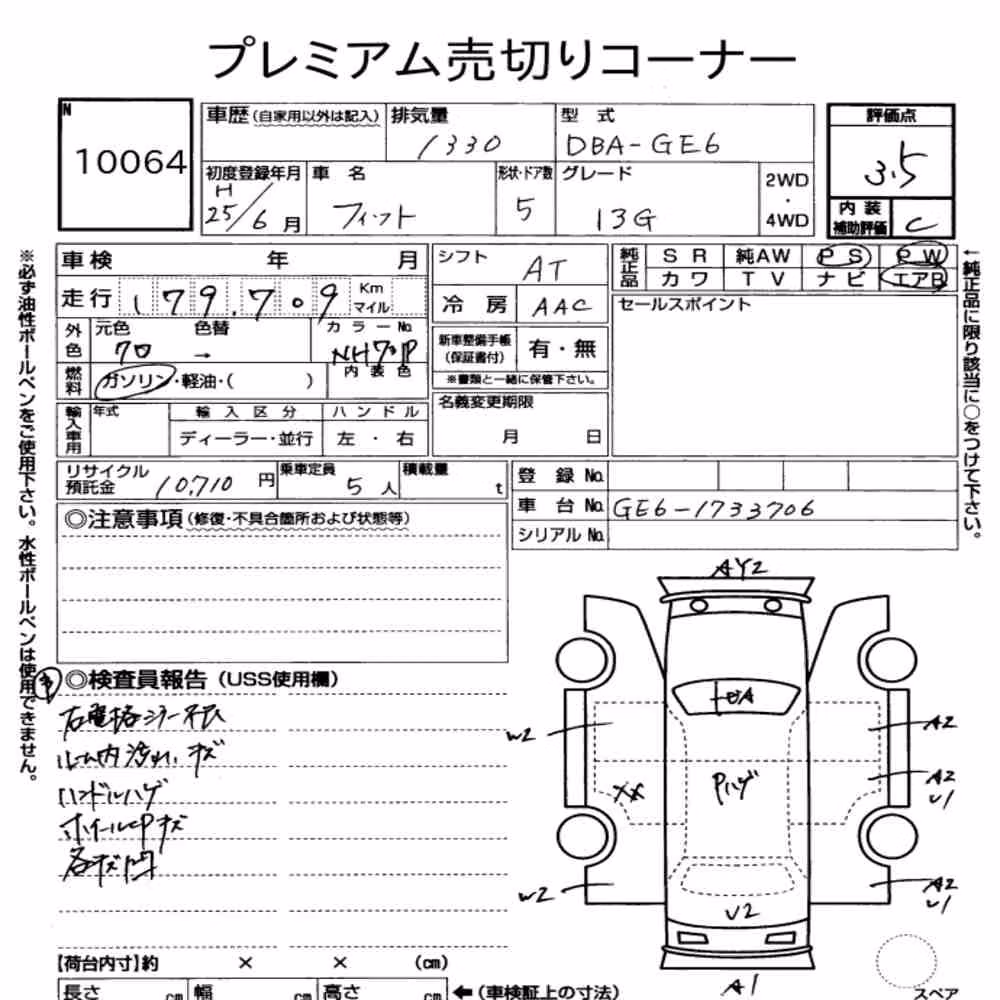 プレミアム売切りコーナー
N
10064
車歴 (自家用以外は記入)
排気量
1330
型式
DBA-GE6
評価点
3.5
初度登録年月
H
25/6月
車名
フィット
形状・ドア数
5
グレード
13G
2WD
・
4WD
内装
補助評価
C
※必ず油性ボールペンをご使用下さい。水性ボールペンは使用できません。
車検 年 月
走行 179,709 Km
マイル
外色
元色 色替
70 →
カラーNo.
NH701P
燃料
ガソリン・軽油・( )
内装色
輸入車用
年式
輸入区分
ハンドル
ディーラー・並行
左・右
シフト
AT
冷房
AAC
新車整備手帳
(保証書付)
有・無
※書類と一緒に保管下さい。
名義変更期限
月 日
純正品
SR 純AW PS PW
カワ TV ナビ エアB
セールスポイント
←純正品に限り該当に○をつけて下さい。
リサイクル
預託金
10,710円
乗車定員
5人
積載量
t
登録No.
車台No. GE6-1733706
シリアルNo.
◎注意事項 (修復・不具合箇所および状態等)
◎検査員報告 (USS使用欄)
ルーム内汚れ、キズ
ハンドルハゲ
AY2
W2
A2
Pハゲ
A2
U1
W2
A2
U1
U2
A1
【荷台内寸】約 × × (cm)
長さ cm 幅 cm 高さ cm
← (車検証上の寸法)
スペア